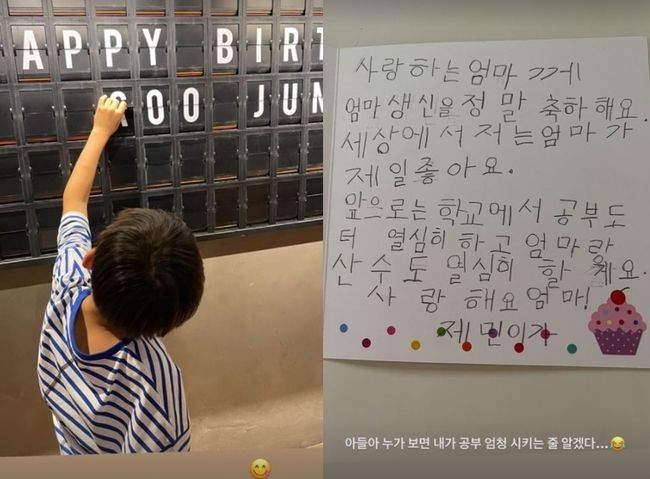 APPY BIRT
ROO JUN
사랑하는엄마께
엄마생신을정말축하해요.
세상에서저는엄마가
제일좋아요.
앞으로는학교에서공부도
터 열심히하고엄마랑
산수도열심히할게요.
사랑해요엄마!
제민이가
아들아 누가 보면 내가 공부 엄청 시키는 줄 알겠다...😂